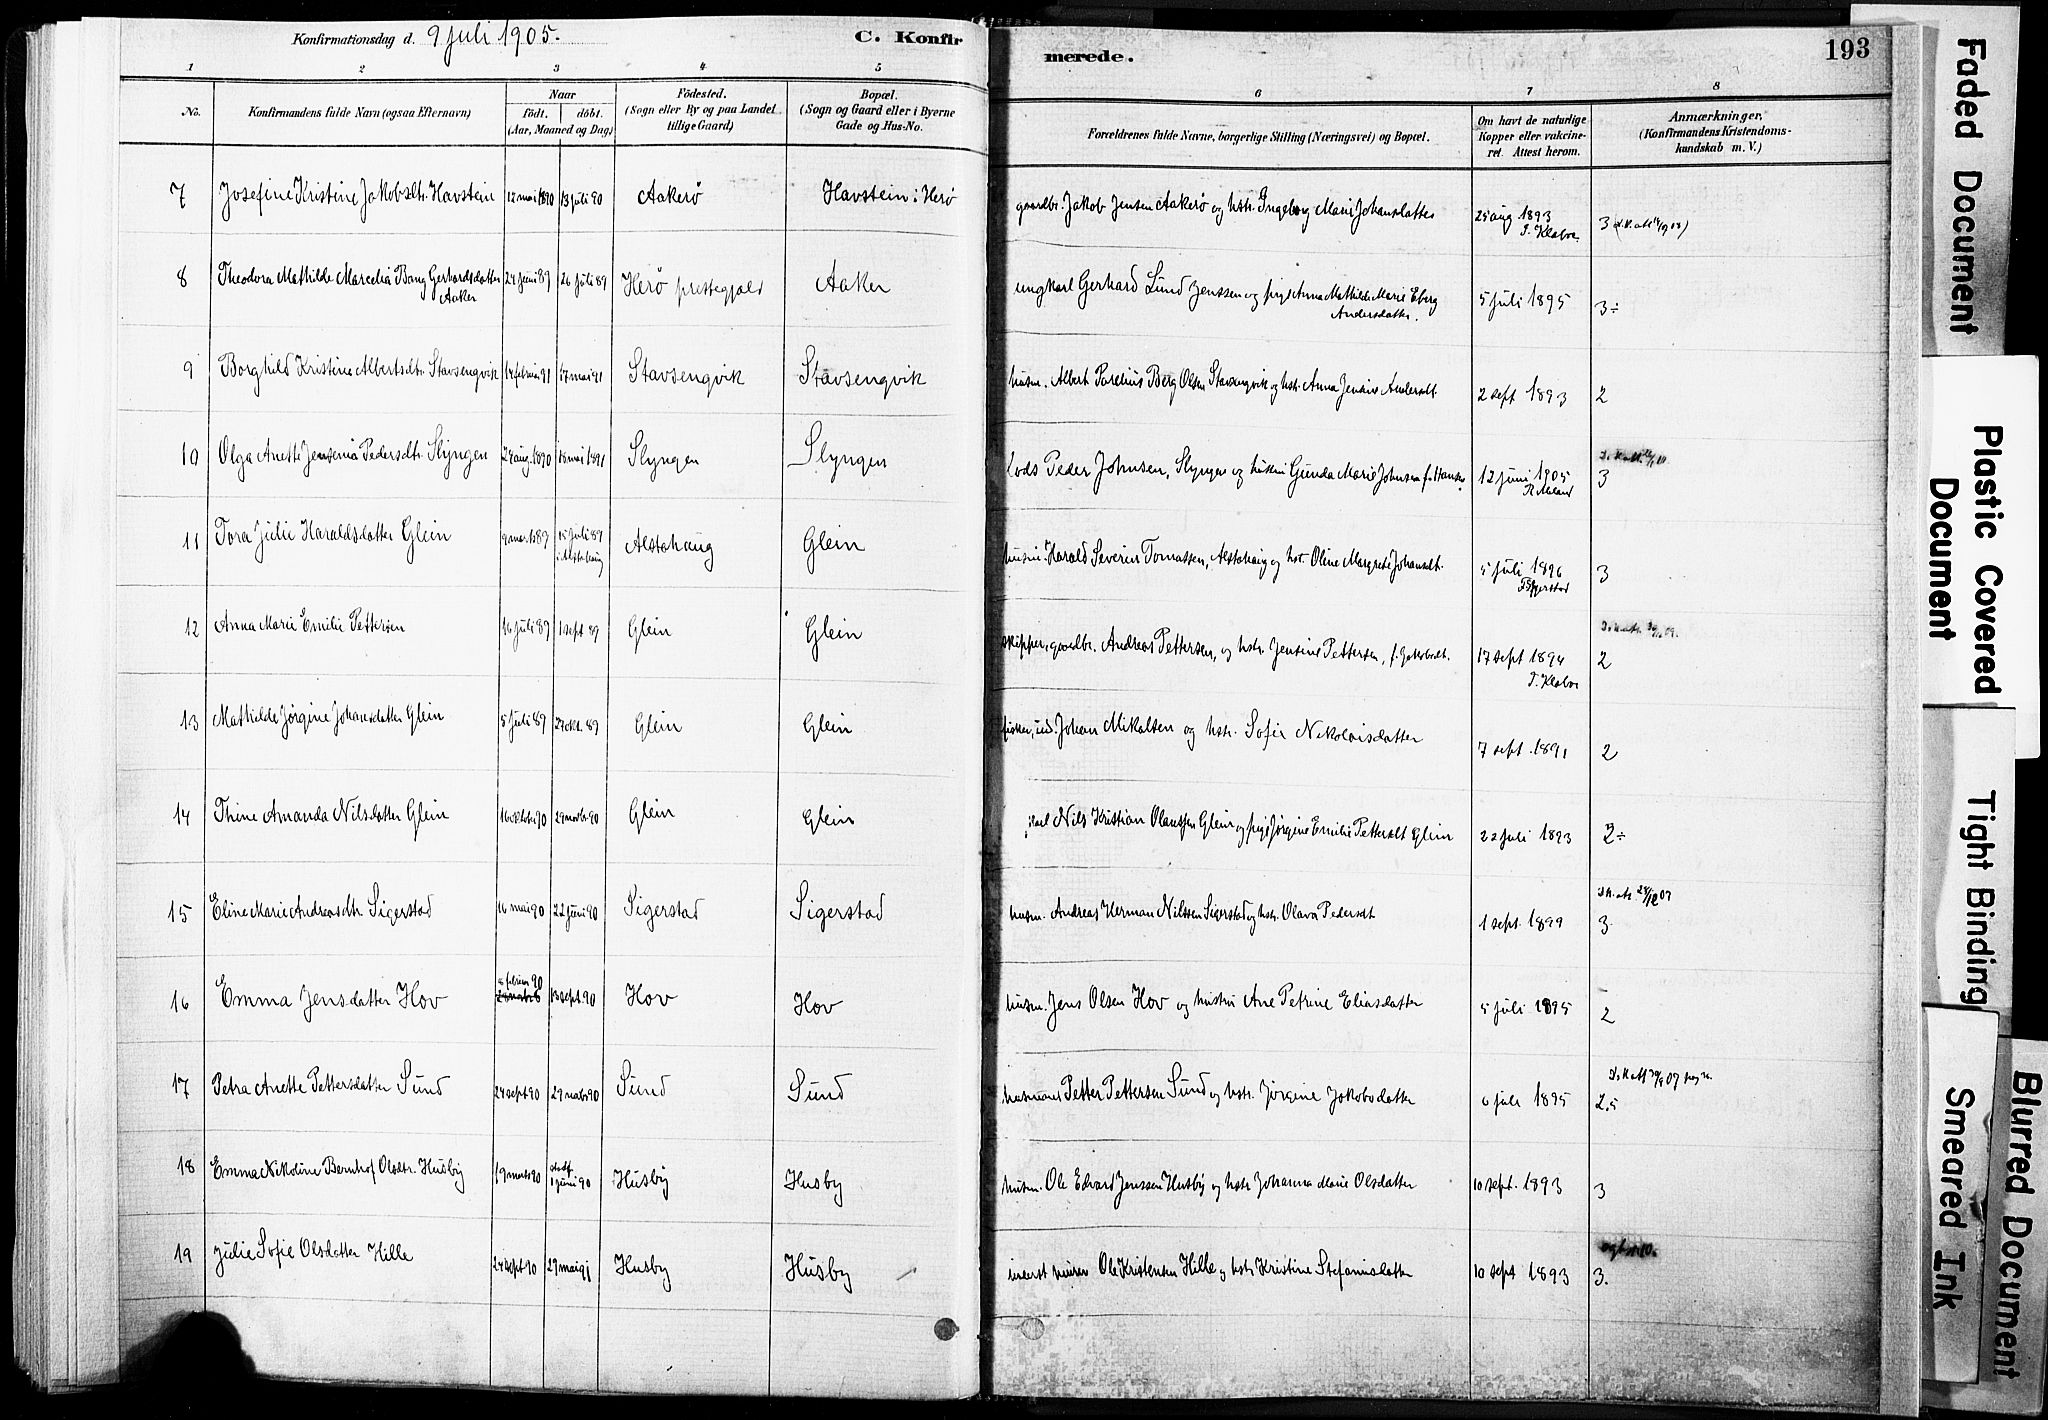 Konfirmationsdag d. 9 Juli 1905. C. Konfir merede. 193
1 2 3 4 5 6 7 8
No. Konfirmandens fulde Navn (ogsaa Efternavn) Naar födt. döbt. (Aar, Maaned og Dag) Födested. (Sogn eller By og paa Landet tillige Gaard) Bopæl. (Sogn og Gaard eller i Byerne Gade og Hus-No. Forældrenes fulde Navne, borgerlige Stilling (Næringsvei) og Bopæl. Om havt de naturlige Kopper eller vakcineret. Attest herom. Anmærkninger, (Konfirmandens Kristendomskundskab m. V.)
7 Josefine Kristine Jakobsdtr. Havstein 12 mai 1890 13 juli 90 Aakerö Havstein i Herö gaardbr. Jakob Jensen Aakerö og hstr. Ingeborg Marie Johansdatter 25 aug 1893 J. Klæboe. 3
8 Theodora Mathilde Marcelia Bang Gerhardsdatter Aaker 24 juni 89 26 juli 89 Herö prestegjeld Aaker ungkarl Gerhard Lund Jenssen og pige Anna Mathilde Marie Eberg Andersdatter. 5 juli 1895 3÷
9 Borghild Kristine Albertsdtr. Stavsengvik 14 februar 91 17 mai 91 Stavsengvik Stavsengvik husm. Albert Parelius Berg Olsen Stavsengvik og hstr. Anna Jensine Andersdt. 2 sept 1893 2
10 Olga Anette Jensenia Pedersdtr. Slyngen 24 aug. 1890 18 mai 1891 Slyngen Slyngen lods Peder Johnsen, Slyngen og hustru Gunda Marie Johnsen f. Hansen 12 juni 1905 3
11 Tora Julie Haraldsdatter Glein 9 mar. 89 15 juli 89 i Alstahaug Alstahaug Glein husm. Harald Severin Tomassen, Alstahaug og hst. Oline Margrete Johansdt. 5 juli 1896 3
12 Anna Marie Emilie Pettersen 16 juli 89 1 sept 89 Glein Glein skipper, gaardbr. Andreas Pettersen, og hstr. Jensine Pettersen, f. Jakobsdt. 17 sept 1894 J. Klæboe 2
13 Mathilde Jörgine Johansdatter Glein 5 juli 89 27 okt. 89 Glein Glein fisker, ind. Johan Mikalsen og hstr. Sofie Nikolaisdatter 7 sept. 1891 2
14 Thine Amanda Nilsdatter Glein 16 oktobr 90 29 novbr 90 Glein Glein Nils Kristian Olaussen Glein og pige Jörgine Emilie Pettersdt Glein 22 juli 1893 2÷
15 Eline Marie Andreasdtr. Sigerstad 16 mai 90 22 juni 90 Sigerstad Sigerstad husm. Andreas Herman Nilssen Sigerstad og hstr. Olava Pedersdt 1 sept. 1899 3
16 Emma Jensdatter Hov februar 90 13 sept. 90 Hov Hov husm. Jens Olsen Hov og hustru Ane Petrine Eliasdatter 5 juli 1895 2
17 Petra Anette Pettersdatter Sund 24 sept 90 29 novbr 90 Sund Sund husmand Petter Pettersen Sund og hstr. Jörgine Jakobsdatter 6 juli 1895 2.5
18 Emma Nikoline Bernhof Olsdtr. Husby 19 marts 90 stadf. 1 juni 90 Husby Husby husm. Ole Edvard Jenssen Husby og hstr Johanna Marie Olsdatter 10 sept. 1893 3
19 Julie Sofie Olsdatter Hille 24 sept 90 29 mai 91 Husby Husby Ole Kristensen Hille og hstr Kristine Stefansdatter 10 sept 1893 3.
Faded Document
Plastic Covered Document
Tight Binding
Blurred Document
Smeared Ink